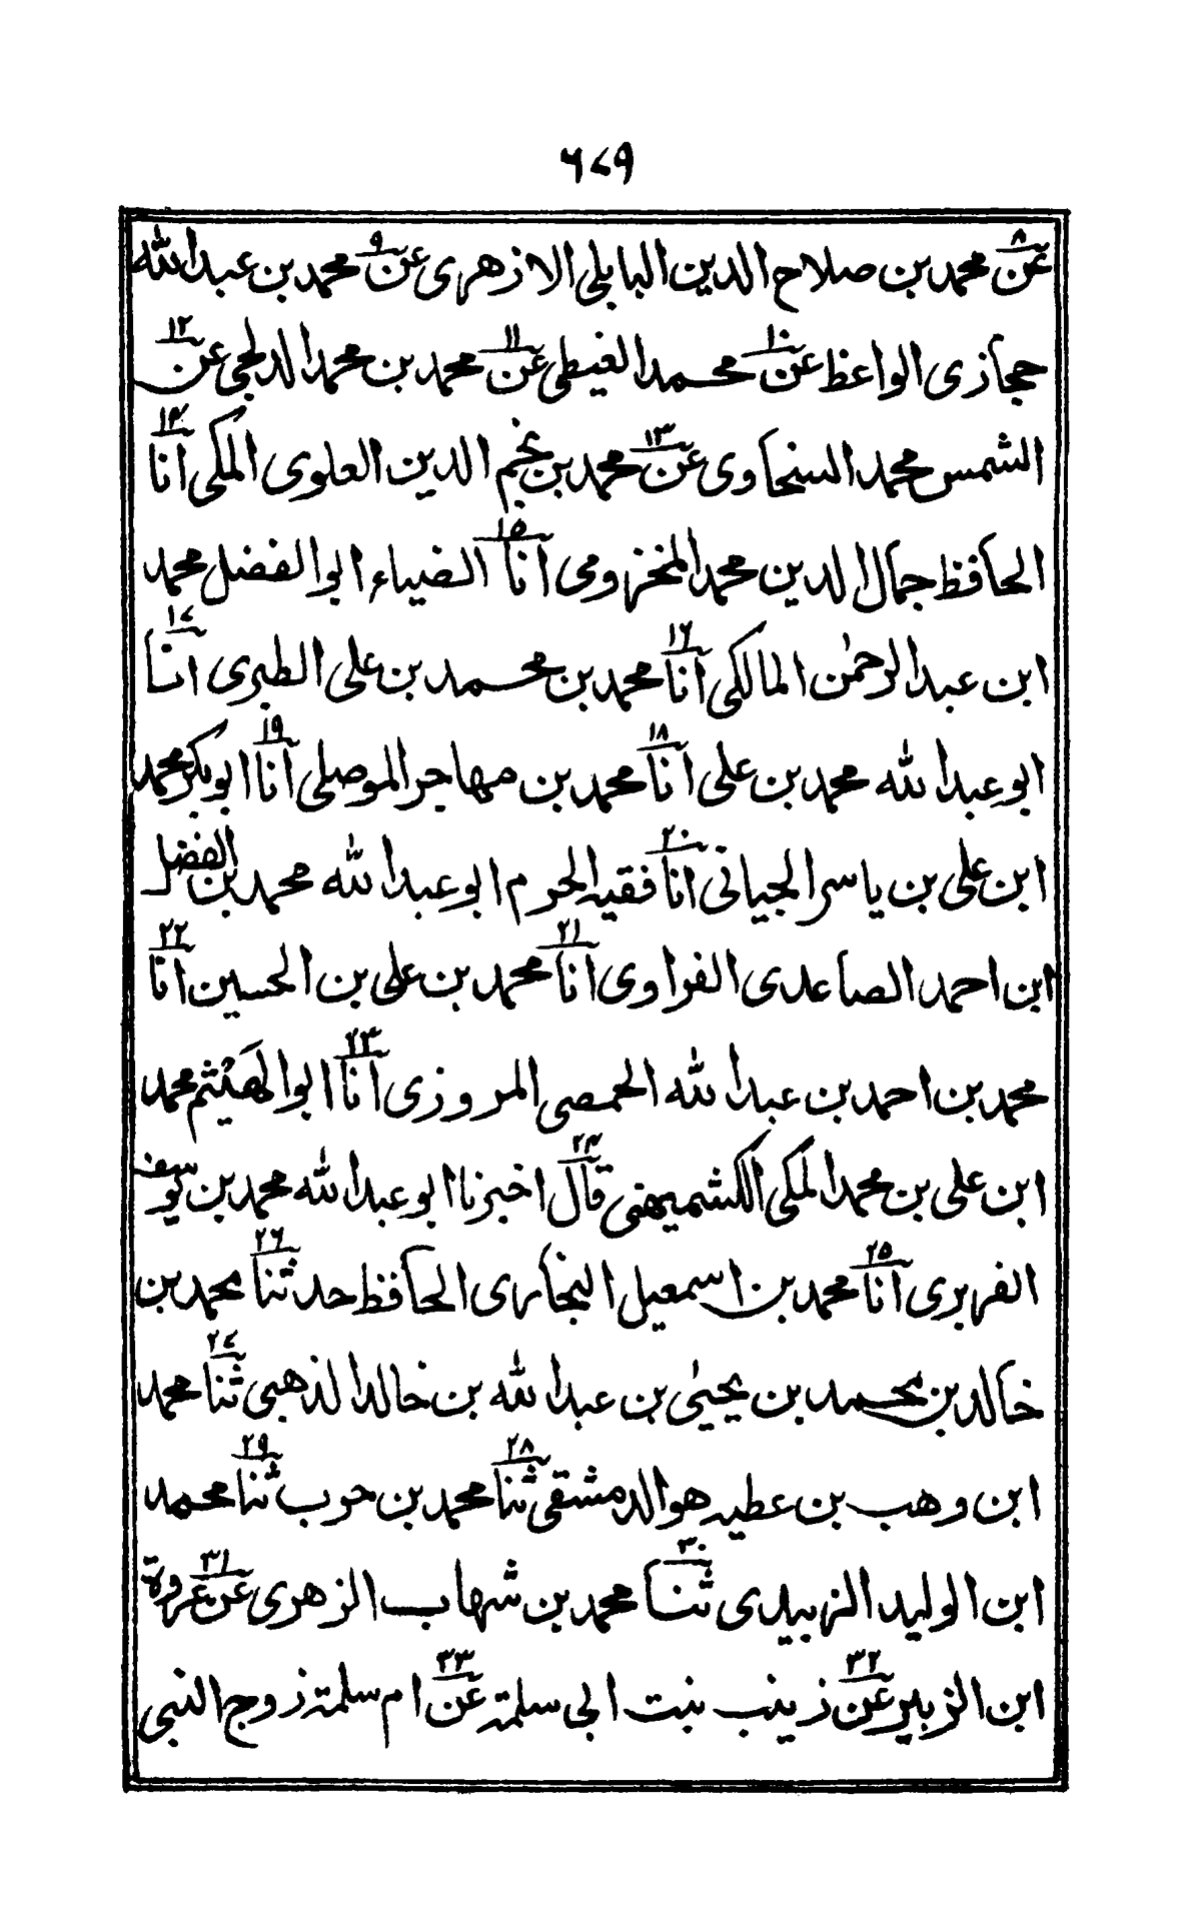 ٦٧٩
٨ ٩
عن محمد بن صلاح الدين البابلى الازهرى عن محمد بن عبد الله
١٠ ١١ ١٢
حجازى الواعظ عن محمد الغيطى عن محمد بن محمد الدلجى عن
١٣ ١٤
الشمس محمد السخاوى عن محمد بن نجم الدين العلوى المكى انا
١٥
الحافظ جمال الدين محمد المخزومى انا الضياء ابوالفضل محمد
١٦ ١٧
ابن عبد الرحمٰن المالكى انا محمد بن محمد بن على الطبرى انا
١٨ ١٩
ابو عبد الله محمد بن على انا محمد بن مهاجر الموصلى انا ابوبكر محمد
٢٠
ابن على بن ياسر الجيانى انا فقيه الحرم ابو عبد الله محمد بن الفضل
٢١ ٢٢
ابن احمد الصاعدى الفراوى انا محمد بن على بن الحسين انا
٢٣
محمد بن احمد بن عبد الله الحمصى المروزى انا ابوالهَيْثم محمد
٢٤
ابن على بن محمد المكى الكشميهنى قال اخبرنا ابو عبد الله محمد بن يوسف
٢٥ ٢٦
الفربرى انا محمد بن اسمعيل البخارى الحافظ حدثنا محمد بن
٢٧
خالد بن محمد بن يحيىٰ بن عبد الله بن خالد الذهبى ثنا محمد
٢٨ ٢٩
ابن وهب بن عطيه هو الدمشقى ثنا محمد بن حرب ثنا محمد
٣٠ ٣١
ابن الوليد الزبيدى ثنا محمد بن شهاب الزهرى عن عروة
٣٢ ٣٣
ابن الزبير عن زينب بنت ابى سلمة عن ام سلمة زوج النبى